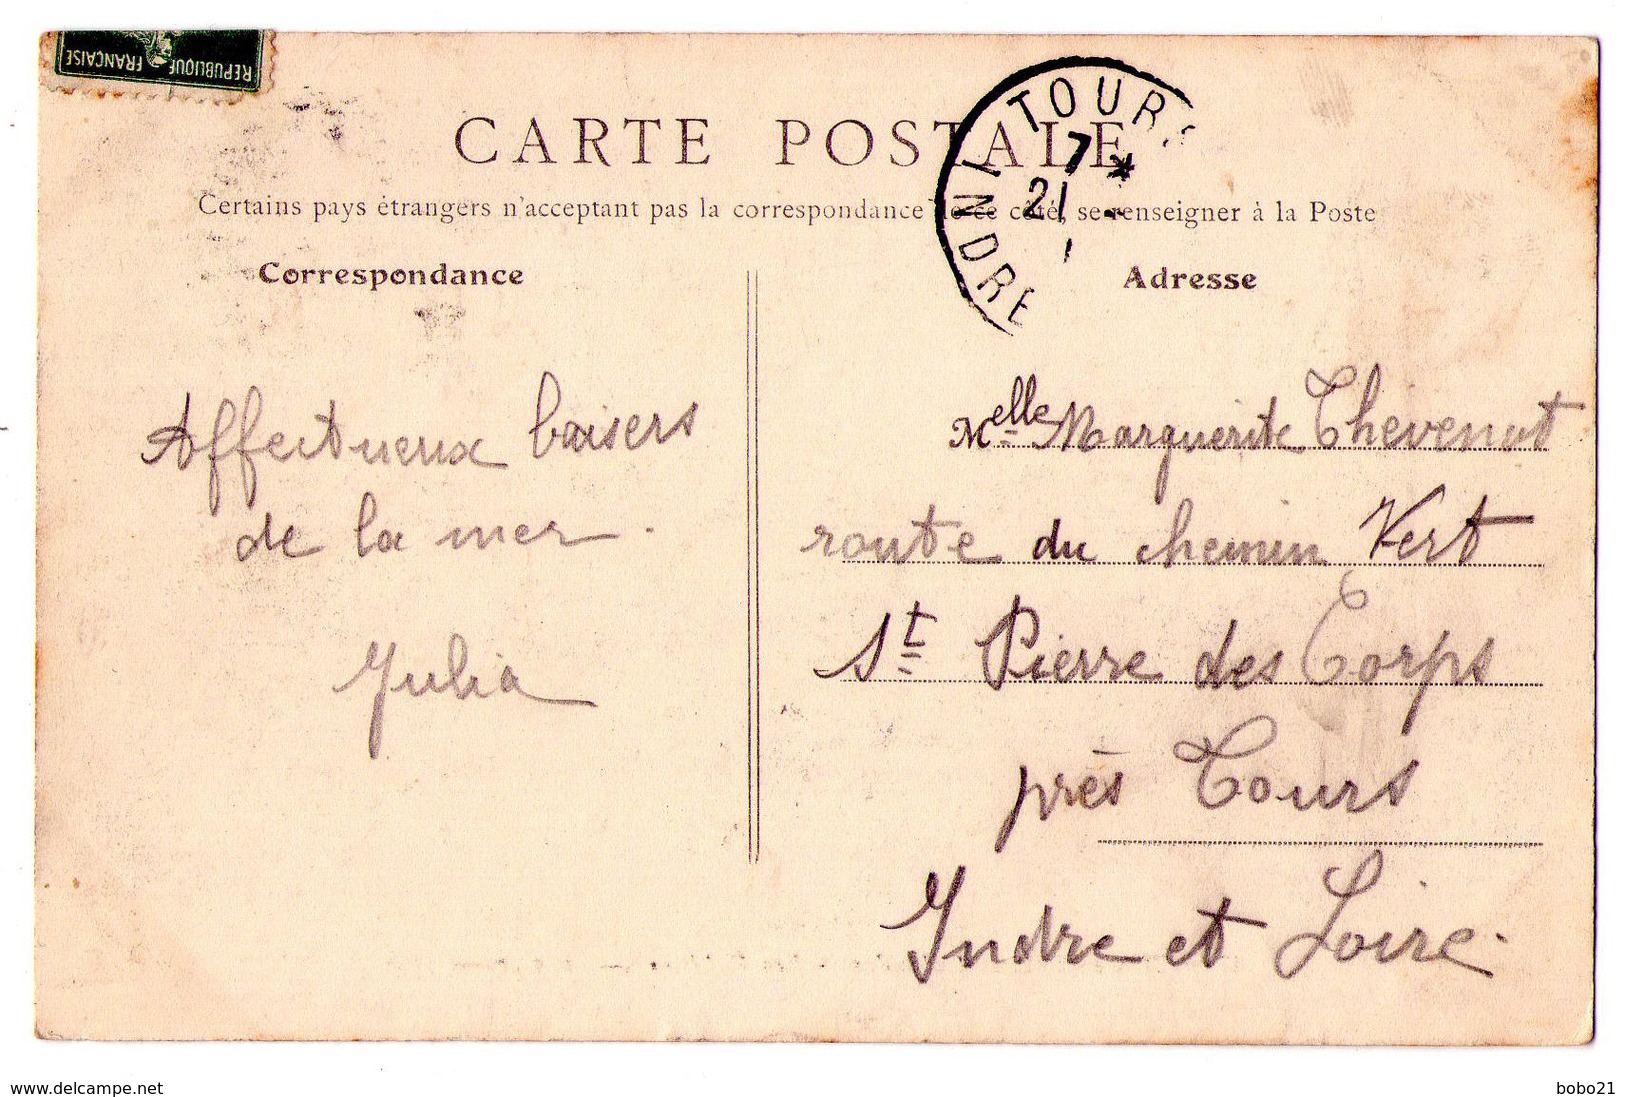 REPUBLIQUE FRANÇAISE
CARTE POSTALE
TOURS
INDRE
7 *
21
Certains pays étrangers n'acceptant pas la correspondance de ce côté, se renseigner à la Poste
Correspondance
Affectueux baisers
de la mer.
Julia
Adresse
Melle Marguerite Thevenot
route du chemin Vert
St Pierre des Corps
près Tours
Indre et Loire.
www.delcampe.net
bobo21